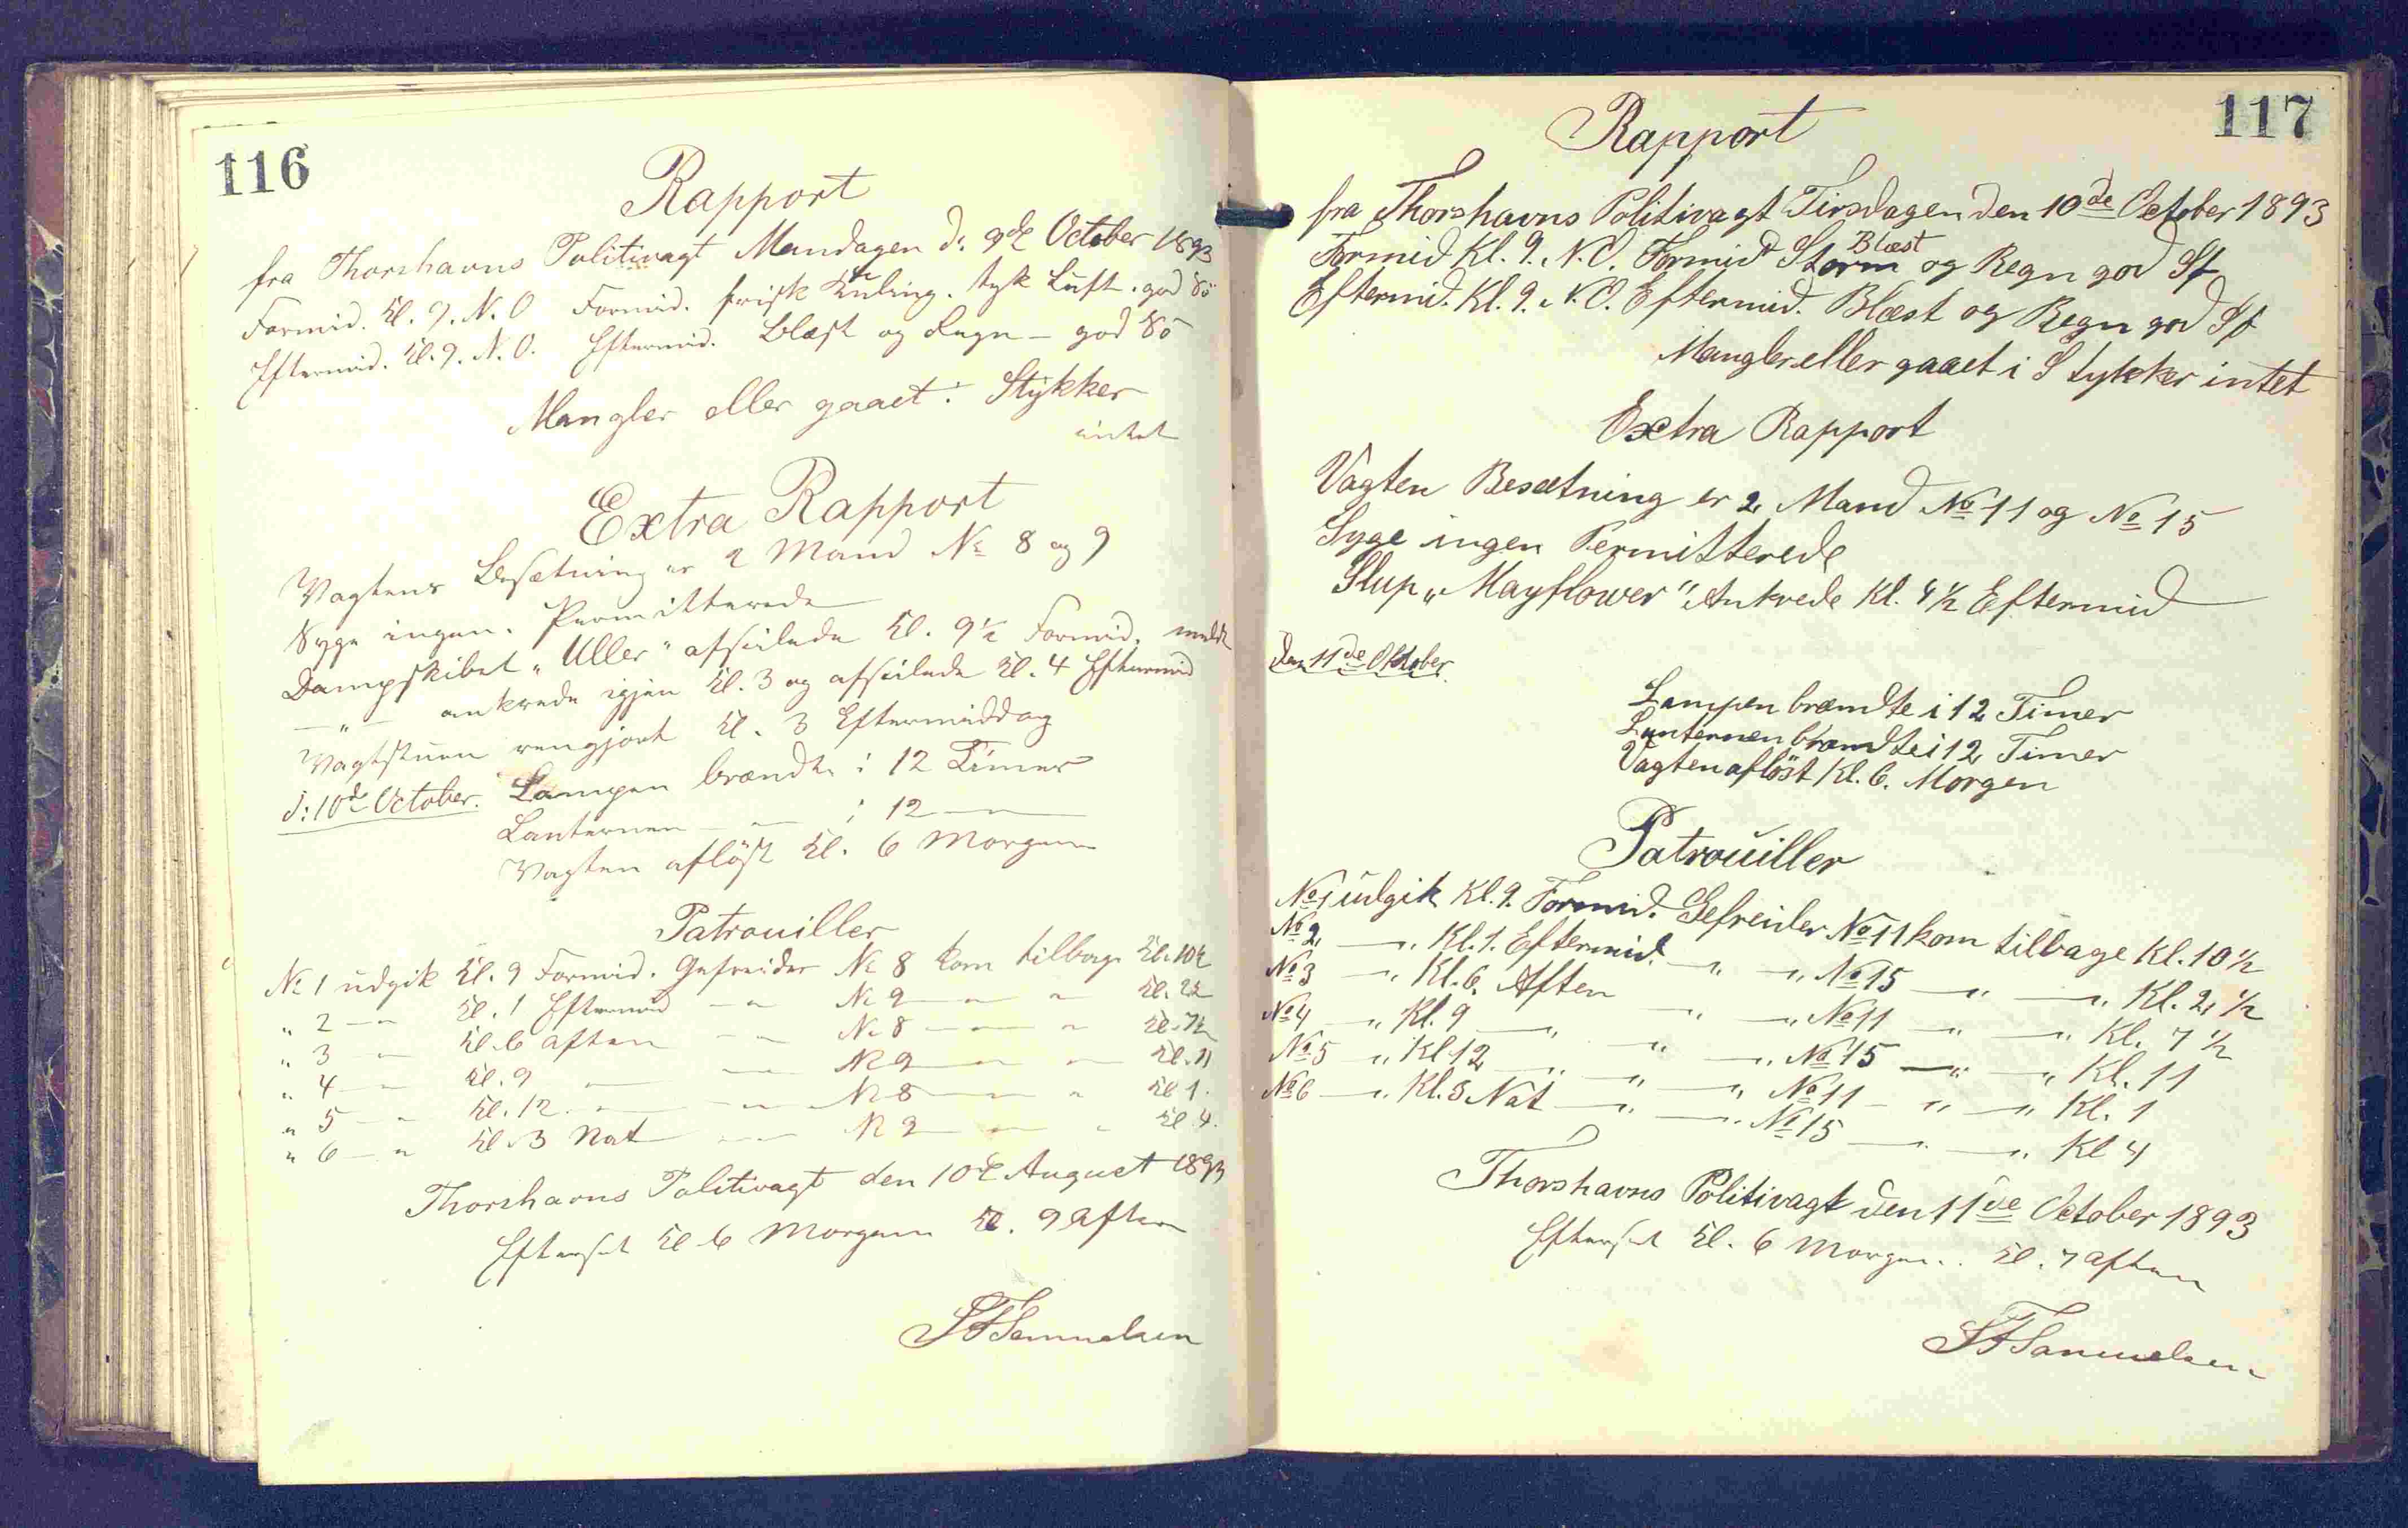 116
Rapport
fra Thorshavns Politivagt Mandagen d: 9de October 1893
Formid. Kl. 9. N. O Formid. frisk Kuling. tyk Luft. god Sö
Eftermid. Kl. 9. N. O. Eftermid. Blæst og Regn - god Sö
Mangler eller gaaet i Stykker
intet
Extra Rapport
Vagtens Besætning er 2 Mand No 8 og 9
Syge ingen. Permitterede
Dampskibet "Uller" afseilede Kl. 9½ Formid.
— " — ankrede igjen Kl. 3 og afseilede Kl. 4 Eftermid
Vagtstuen rengjort Kl. 3 Eftermiddag
d: 10de October. Lampen brændte i 12 Timer
Lanternen — " — i 12 — " —
Vagten aflöst Kl. 6 Morgen
Patrouiller
No 1 udgik Kl. 9 Formid. Gefreider No 8 kom tilbage Kl. 10½
" 2 — " Kl. 1 Eftermid — " No 9 — " — " Kl. 2½
" 3 — " Kl. 6 Aften — " No 8 — " — " Kl. 7½
" 4 — " Kl. 9 — " — " No 9 — " — " Kl. 11
" 5 — " Kl. 12 — " — " No 8 — " — " Kl 1.
" 6 — " Kl. 3 Nat — " No 9 — " — " Kl 4.
Thorshavns Politivagt den 10de August 1893
Efterset Kl 6 Morgen Kl. 9 Aften
Samuelsen
117
Rapport
fra Thorshavns Politivagt Tirsdagen den 10de October 1893
Blæst
Formid. Kl. 9. N. O. Formid Storm og Regn god Sø
Eftermid. Kl. 9. N. O. Eftermid. Blæst og Regn god Sø
Mangler eller gaaet i Stykker intet
Extra Rapport
Vagten Besætning er 2 Mand No 11 og No 15
Syge ingen Permitterede
Slup "Mayflower" Ankrede Kl. 4½ Eftermid
Den 11de Oktober.
Lampen brændte i 12 Timer
Lanternen brændte i 12 Timer
Vagten aflöst Kl. 6. Morgen
Patrouiller
No 1 udgik Kl. 9. Formid. Gefreider No 11 kom tilbage Kl. 10½
No 2 — " Kl. 1. Eftermid. — " — " No 15 — " — " Kl. 2½
No 3 — " Kl. 6. Aften — " — " No 11 — " — " Kl. 7½
No 4 — " Kl. 9 — " — " — " No 15 — " — " Kl. 11
No 5 — " Kl 12 — " — " — " No 11 — " — " Kl. 1
No 6 — " Kl. 3 Nat — " — " No 15 — " — " Kl 4
Thorshavns Politivagt den 11de October 1893
Efterset Kl. 6 Morgen. Kl. 7 Aften
Samuelsen